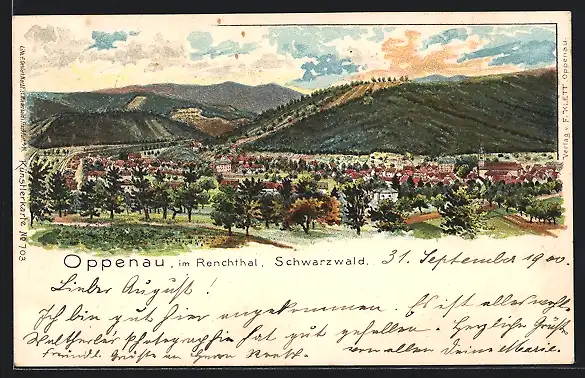 Oppenau, im Renchthal, Schwarzwald.
31. September 1900.
Lieber August!
Ich bin gut hier angekommen. Es ist alles wohl.
Walthers Photographie hat gut gefallen. Herzliche Grüße
Freundl. Grüße an Herrn
von allen Deine Marie.
Künstlerkarte No 703
Verlag v. F. KLETT Oppenau.